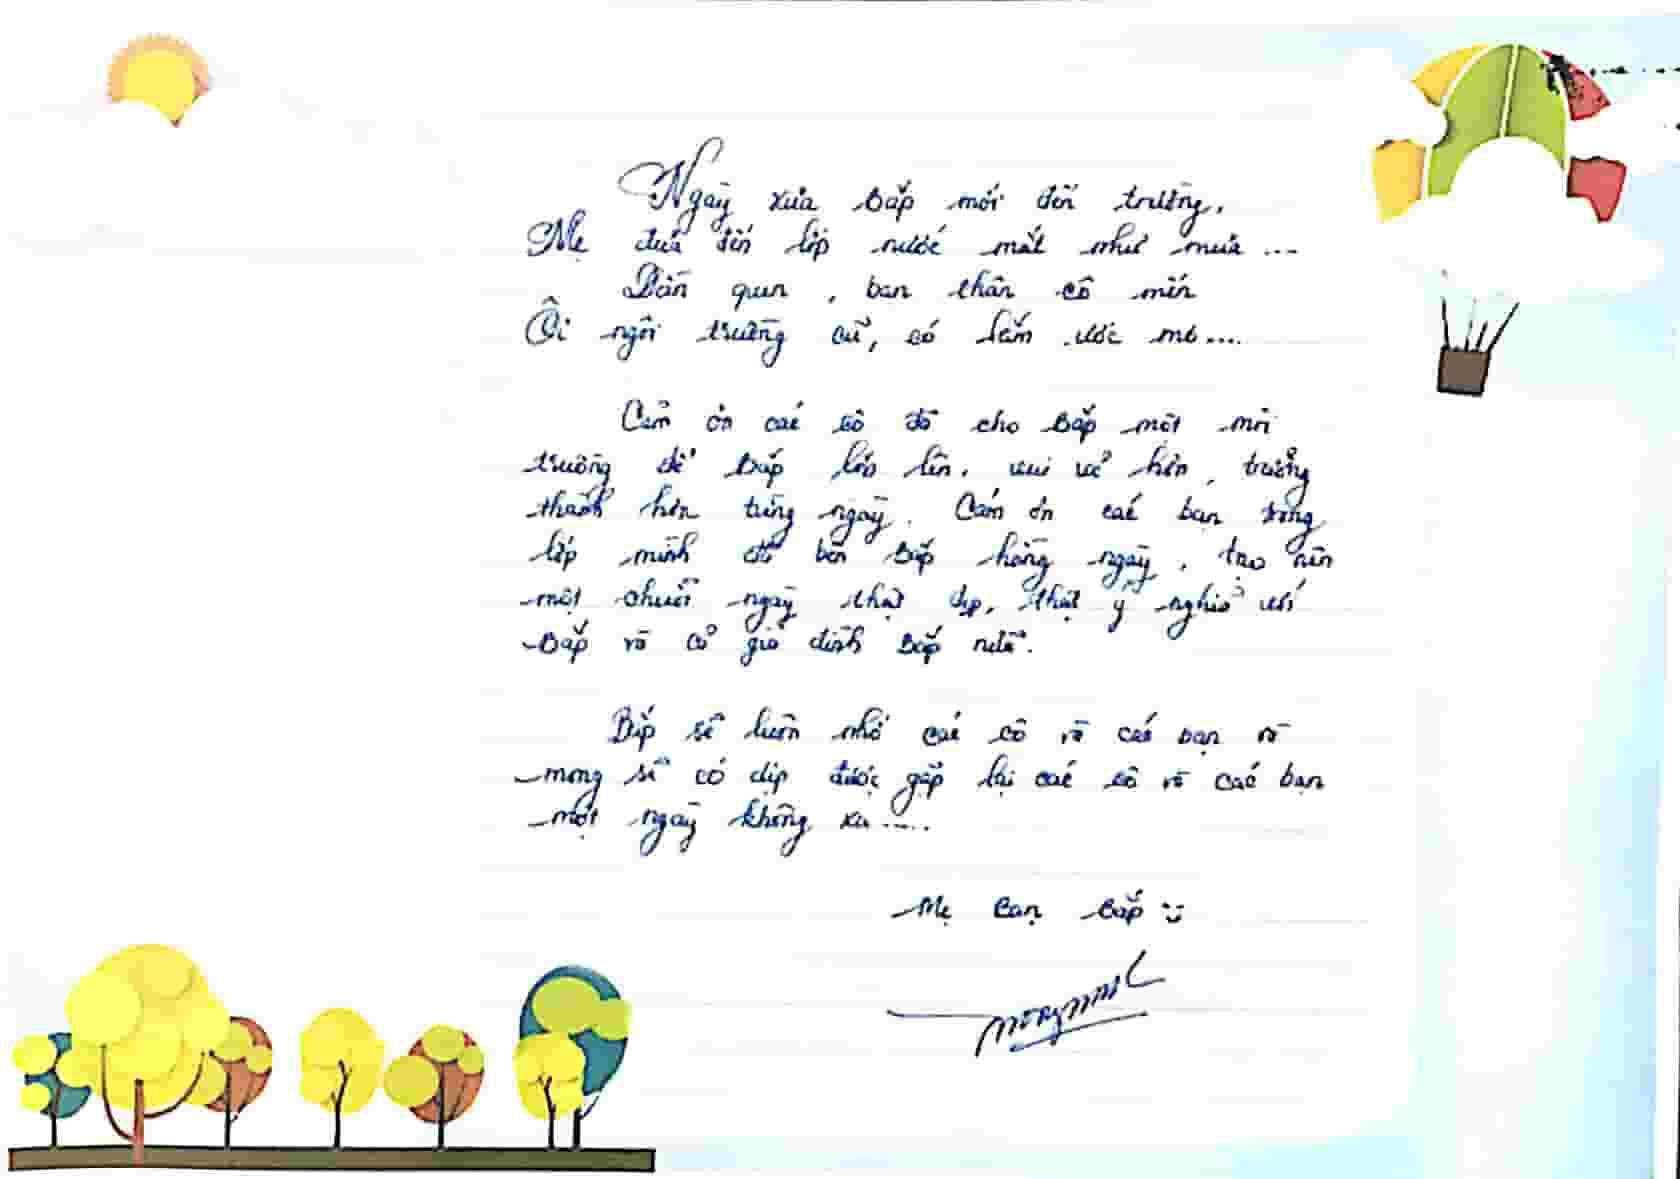 Ngày xưa Bắp mới đến trường,
Mẹ đưa đến lớp nước mắt như mưa ...
Dần quen, bạn thân cô mến
Ôi ngôi trường cũ, có lắm ước mơ....
Cảm ơn các cô đã cho Bắp một môi
trường để Bắp lớn lên, vui vẻ hơn, trưởng
thành hơn từng ngày. Cám ơn các bạn trong
lớp mình đã bên Bắp hàng ngày, tạo nên
một chuỗi ngày thật đẹp, thật ý nghĩa với
Bắp và cả gia đình Bắp nữa.
Bắp sẽ luôn nhớ các cô và các bạn và
mong sẽ có dịp được gặp lại các cô và các bạn
một ngày không xa.....
Mẹ bạn Bắp